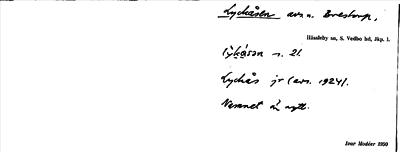 Lyckåsen avs. u. Brestorp,
Hässleby sn, S. Vedbo hd, Jkp. l.
s. 21.
Lyckås jr (avs. 1924).
Namnet är nytt.
Ivar Modéer 1950